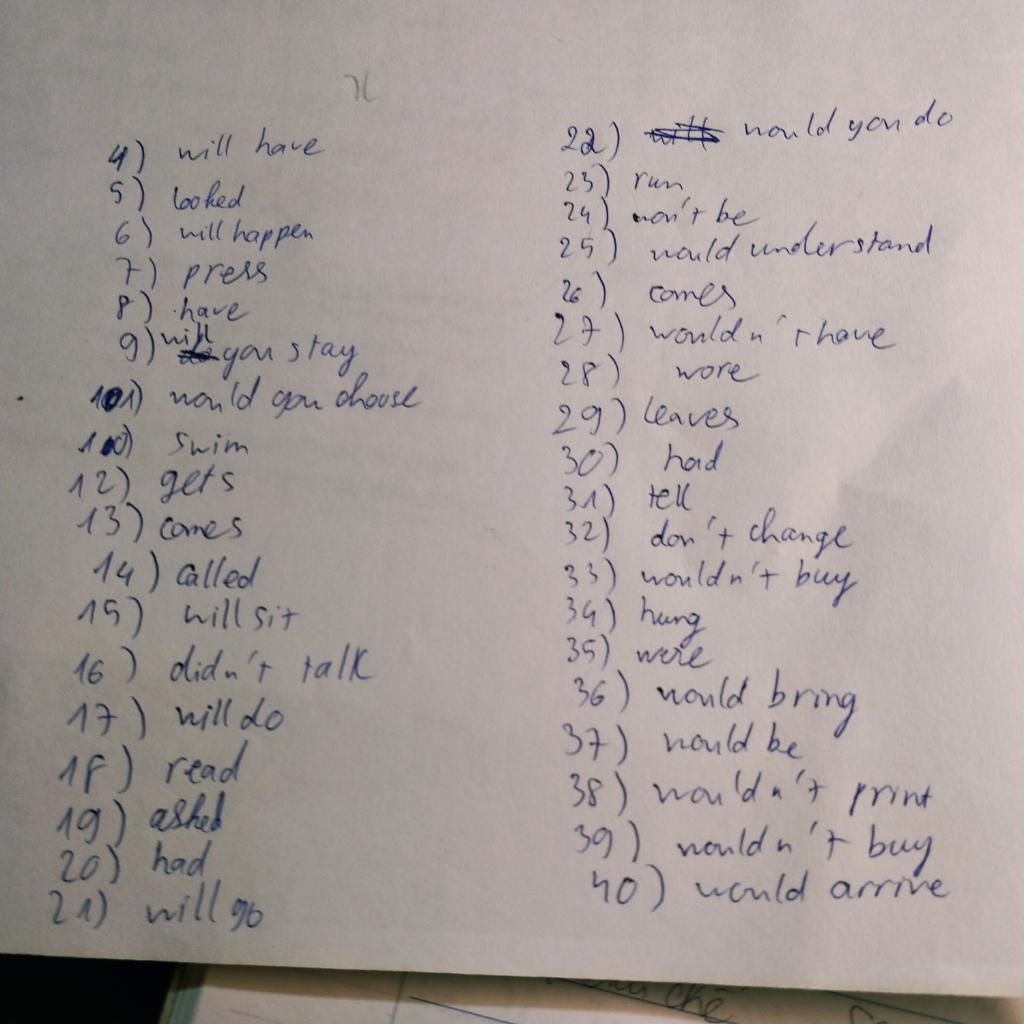 4) will have
5) looked
6) will happen
7) press
8) have
9) will you stay
11) would you choose
10) swim
12) gets
13) comes
14) called
15) will sit
16) didn't talk
17) will do
18) read
19) asked
20) had
21) will go
22) would you do
23) run
24) won't be
25) would understand
26) comes
27) wouldn't have
28) wore
29) leaves
30) had
31) tell
32) don't change
33) wouldn't buy
34) hung
35) were
36) would bring
37) would be
38) wouldn't print
39) wouldn't buy
40) would arrive